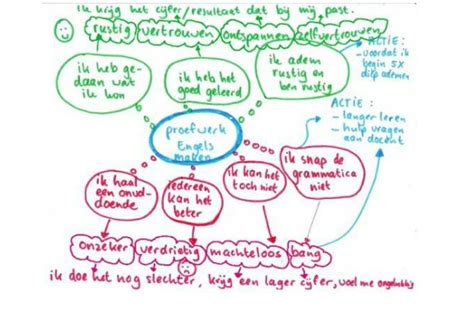 ik krijg het cijfer/resultaat dat bij mij past.
rustig vertrouwen ontspannen zelfvertrouwen
ACTIE:
- voordat ik
begin 5x
diep ademen
ik heb ge-
daan wat
ik kon
ik heb het
goed geleerd
ik adem
rustig en
ben rustig
ACTIE:
- langer leren
- hulp vragen
aan docent
proefwerk
Engels
maken
ik haal
een onvol-
doende
iedereen
kan het
beter
ik kan het
toch niet
ik snap de
grammatica
niet
onzeker verdrietig machteloos bang
ik doe het nog slechter, krijg een lager cijfer, voel me ongelukkig